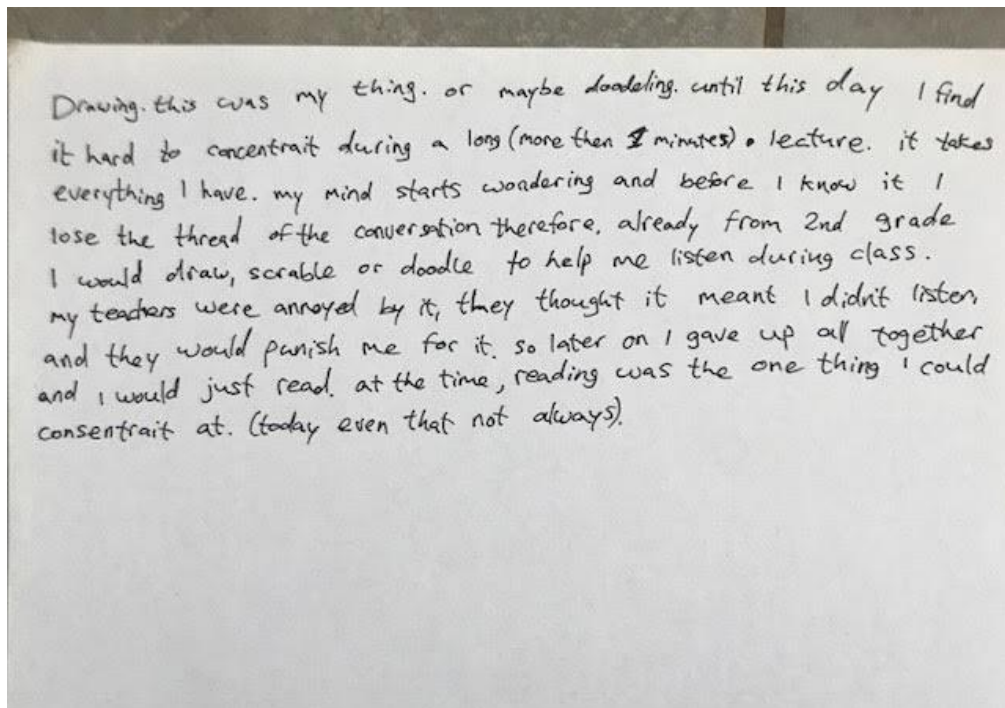 Drawing. this was my thing. or maybe doodeling. until this day I find
it hard to concentrait during a long (more then 1 minutes). lecture. it takes
everything I have. my mind starts wondering and before I know it I
lose the thread of the conversation therefore, already from 2nd grade
I would draw, scrable or doodle to help me listen during class.
my teachers were annoyed by it, they thought it meant I didn't listen,
and they would punish me for it. so later on I gave up all together
and I would just read. at the time, reading was the one thing I could
consentrait at. (today even that not always).